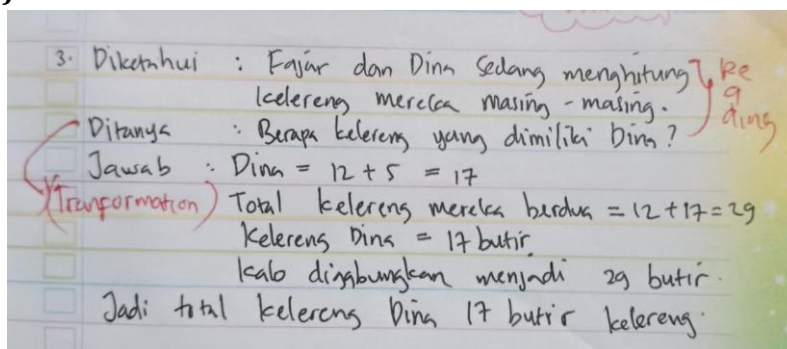 3. Diketahui : Fajar dan Dina sedang menghitung
kelereng mereka masing-masing.
Reading
Ditanya : Berapa kelereng yang dimiliki Dina?
Jawab : Dina = 12 + 5 = 17
(Tranformation) Total kelereng mereka berdua = 12 + 17 = 29
Kelereng Dina = 17 butir
kalo digabungkan menjadi 29 butir.
Jadi total kelereng Dina 17 butir kelereng.